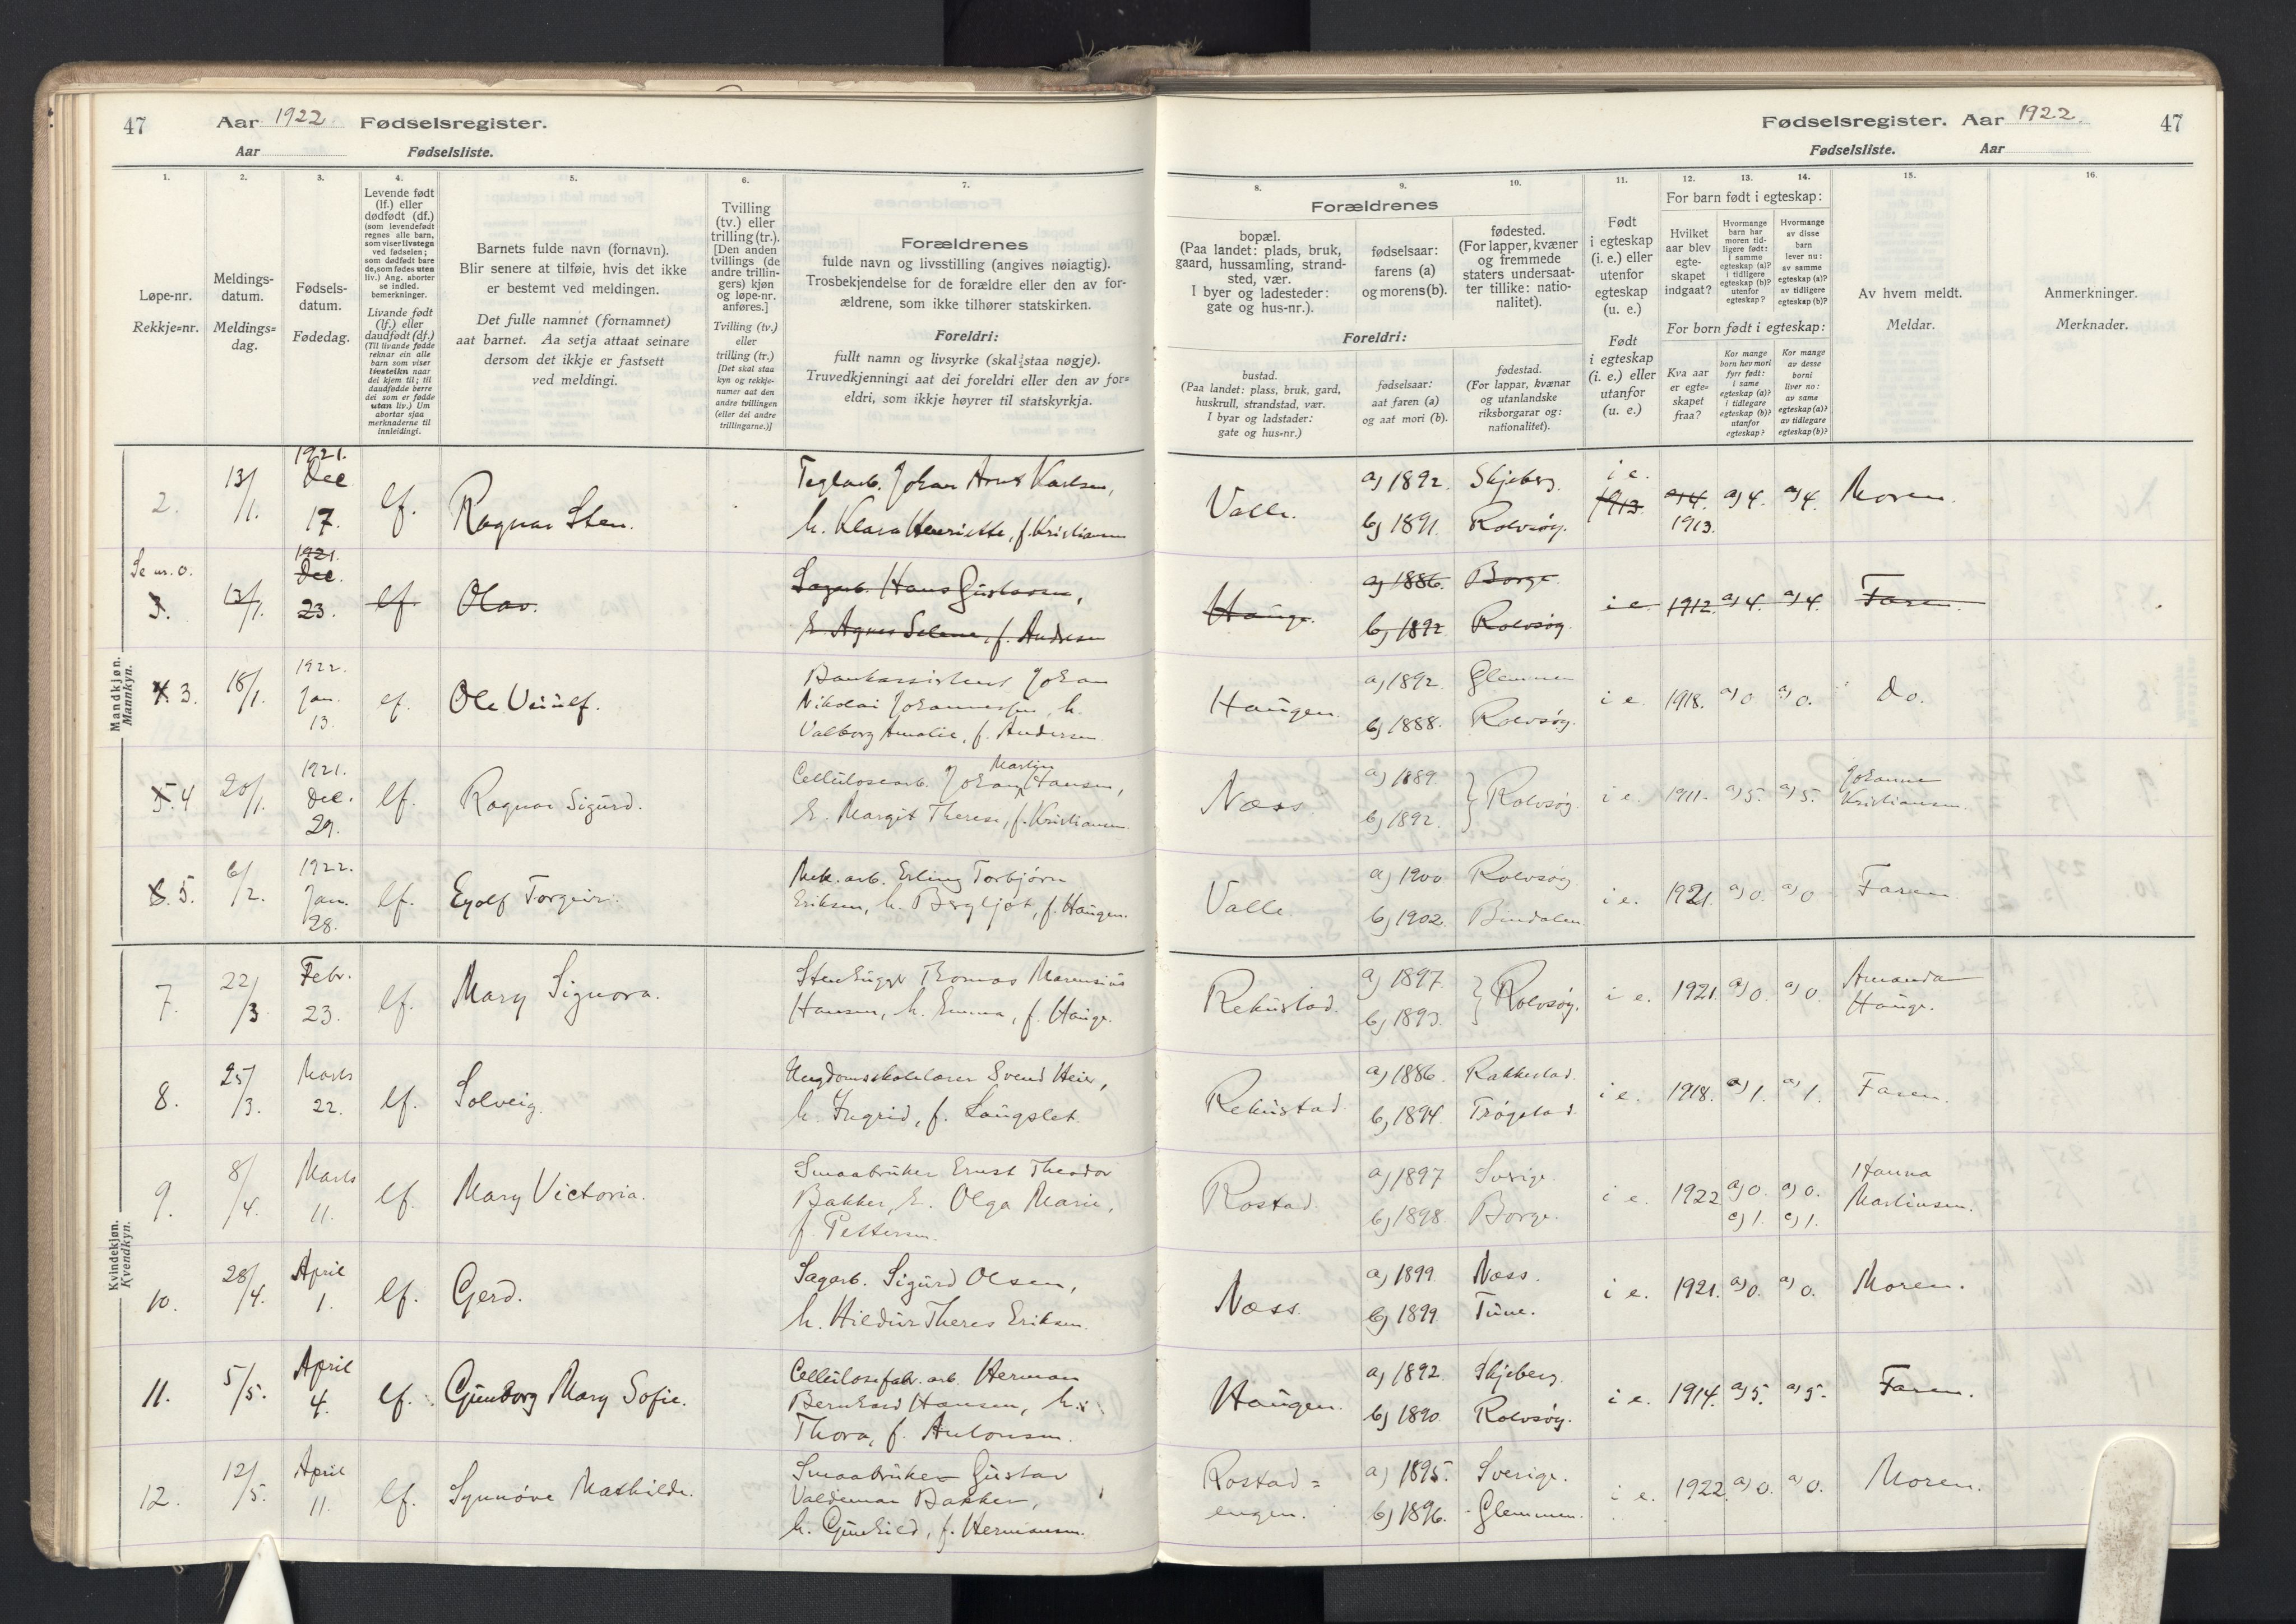 47 Aar 1922 Fødselsregister.
Aar Fødselsliste.
Fødselsregister. Aar 1922. 47
Fødselsliste. Aar
1. 2. 3. 4. 5. 6. 7.
Løpe-nr.
Rekkje=nr.
Meldings-
datum.
Meldings=
dag.
Fødsels-
datum.
Fødedag.
Levende født
(lf.) eller
dødfødt (df.)
(som levendefødt
regnes alle barn,
som viser livstegn
ved fødselen;
som dødfødt bare
de, som fødes uten
liv.) Ang. aborter
se indled.
bemerkninger.
Livande født
(lf.) eller
daudfødt (df.)
(Til livande fødde
reknar ein alle
barn som viser
livsteikn naar
dei kjem til; til
daudfødde berre
dei som er fødde
utan liv.) Um
abortar sjaa
merknaderne til
innleidingi.
Barnets fulde navn (fornavn).
Blir senere at tilføie, hvis det ikke
er bestemt ved meldingen.
Det fulle namnet (fornamnet)
aat barnet. Aa setja attaat seinare
dersom det ikkje er fastsett
ved meldingi.
Tvilling
(tv.) eller
trilling (tr.).
[Den anden
tvillings (de
andre trillin-
gers) kjøn
og løpe-nr.
anføres.]
Tvilling (tv.)
eller
trilling (tr.)
[Det skal staa
kyn og rekkje-
numer aat den
andre tvillingen
(eller dei andre
trillingarne.)]
Forældrenes
fulde navn og livsstilling (angives nøiagtig).
Trosbekjendelse for de forældre eller den av for-
ældrene, som ikke tilhører statskirken.
Foreldri:
fullt namn og livsyrke (skal staa nøgje).
Truvedkjenningi aat dei foreldri eller den av for=
eldri, som ikkje høyrer til statskyrkja.
8. 9. 10. 11. 12. 13. 14. 15. 16.
Forældrenes
bopæl.
(Paa landet: plads, bruk,
gaard, hussamling, strand-
sted, vær.
I byer og ladesteder:
gate og hus-nr.).
fødselsaar:
farens (a)
og morens (b).
fødested.
(For lapper, kvæner
og fremmede
staters undersaat-
ter tillike: natio-
nalitet).
Foreldri:
bustad.
(Paa landet: plass, bruk, gard,
huskrull, strandstad, vær.
I byar og ladstader:
gate og hus=nr.)
fødselsaar:
aat faren (a)
og aat mori (b).
fødestad.
(For lappar, kvænar
og utanlandske
riksborgarar og:
nationalitet).
Født
i egteskap
(i. e.) eller
utenfor
egteskap
(u. e.)
Født
i egteskap
(i. e.) eller
utanfor
(u. e.)
For barn født i egteskap:
Hvilket
aar blev
egte-
skapet
indgaat?
Hvormange
barn har
moren tid-
ligere født:
i samme
egteskap (a)?
i tidligere
egteskap (b)?
utenfor
egteskap?
Hvormange
av disse
barn
lever nu:
av samme
egteskap (a)?
av tidligere
egteskap (b)?
For born født i egteskap:
Kva aar
er egte=
skapet
fraa?
Kor mange
born hev mori
fyrr født:
i same
egteskap (a)?
i tidlegare
egteskap (b)?
utanfor
egteskap?
Kor mange
av desse
borni
liver no:
av same
egteskap (a)?
av tidlegare
egteskap (b)?
Av hvem meldt.
Meldar.
Anmerkninger.
Merknader.
Mandkjøn.
Mannkyn.
2. 13/1. 1921. Dec 17. lf. Ragnar Sten. Teglarb. Johan Arnt Karlsen,
h. Klara Henriette, f. Kristiansen
Valle. a) 1892. Skjeberg. i e. 1913. a) 4. a) 4. a) 4. Moren.
b) 1891. Rolvsøy. 1913.
Se nr. 0.
3. 13/1. 1921. Dec. 23. lf. Olav. Sagarb. Hans Gustavsen,
h. Agnes Selene, f. Andresen
Hauge. a) 1886. Borge. i e. 1912. a) 4. a) 4. Faren.
b) 1892 Rolvsøy.
4. 3. 18/1. 1922. Jan. 13. lf. Ole Veiulf. Bankassistent Johan
Nikolai Johannessen, h.
Valborg Amalie, f. Andersen.
Haugen. a) 1892. Glemmen i e. 1918. a) 0 a) 0. do.
b) 1888. Rolvsøy.
5. 4 20/1. 1921. Dec. 29. lf. Ragnar Sigurd. Cellulosearb. Johan Martin Hansen,
h. Margit Therese, f. Kristiansen.
Næss. a) 1889. } Rolvsøy. i e. 1911. a) 5. a) 5. Johanne
b) 1892. Kristiansen.
6. 5. 6/2. 1922. Jan. 28. lf. Eyolf Torgeir. Mek. arb. Erling Torbjørn
Eriksen, h. Bergljot, f. Haugen.
Valle. a) 1900 Rolvsøy i e. 1921. a) 0. a) 0 Faren.
b) 1902. Bindalen.
Kvindekjøn.
Kvendkyn.
7. 22/3 Febr. 23. lf. Mary Signora. Stenhugger Thomas Marensius
Hansen, h. Emma, f. Hauge.
Rekustad. a) 1897. } Rolvsøy. i e. 1921. a) 0. a) 0. Amanda
b) 1893. Hauge.
8. 25/3. Marts 22. lf. Solveig. Ungdomsskolelærer Svend Heier,
h. Ingrid, f. Langslet.
Rekustad. a) 1886. Rakkestad. i e. 1918. a) 1. a) 1. Faren.
b) 1894. Trøgstad.
9. 8/4. Marts 11. lf. Mary Victoria. Smaabruker Ernst Theodor
Bakker, h. Olga Marie,
f. Pettersen.
Rostad. a) 1897 Sverige. i e. 1922 a) 0. a) 0. Hanna
b) 1898. Borge. c) 1. c) 1. Martinsen.
10. 28/4. April 1. lf. Gerd. Sagarb. Sigurd Olsen,
h. Hildur Theres Eriksen.
Næss. a) 1899. Næss. i e. 1921. a) 0. a) 0. Moren.
b) 1899. Tune.
11. 5/5. April 4. lf. Gunborg Mary Sofie. Cellulosefabr. arb. Herman
Bernhard Hansen, h.
Thora, f. Antonsen.
Haugen. a) 1892. Skjeberg. i e. 1914. a) 5. a) 5. Faren.
b) 1890. Rolvsøy.
12. 12/5. April 11. lf. Synnøve Mathilde. Smaabruker Gustav
Valdemar Bakker,
h. Gunhild, f. Hermansen.
Rostad= a) 1895. Sverige. i e. 1922. a) 0. a) 0. Moren.
engen. b) 1896. Glemmen.